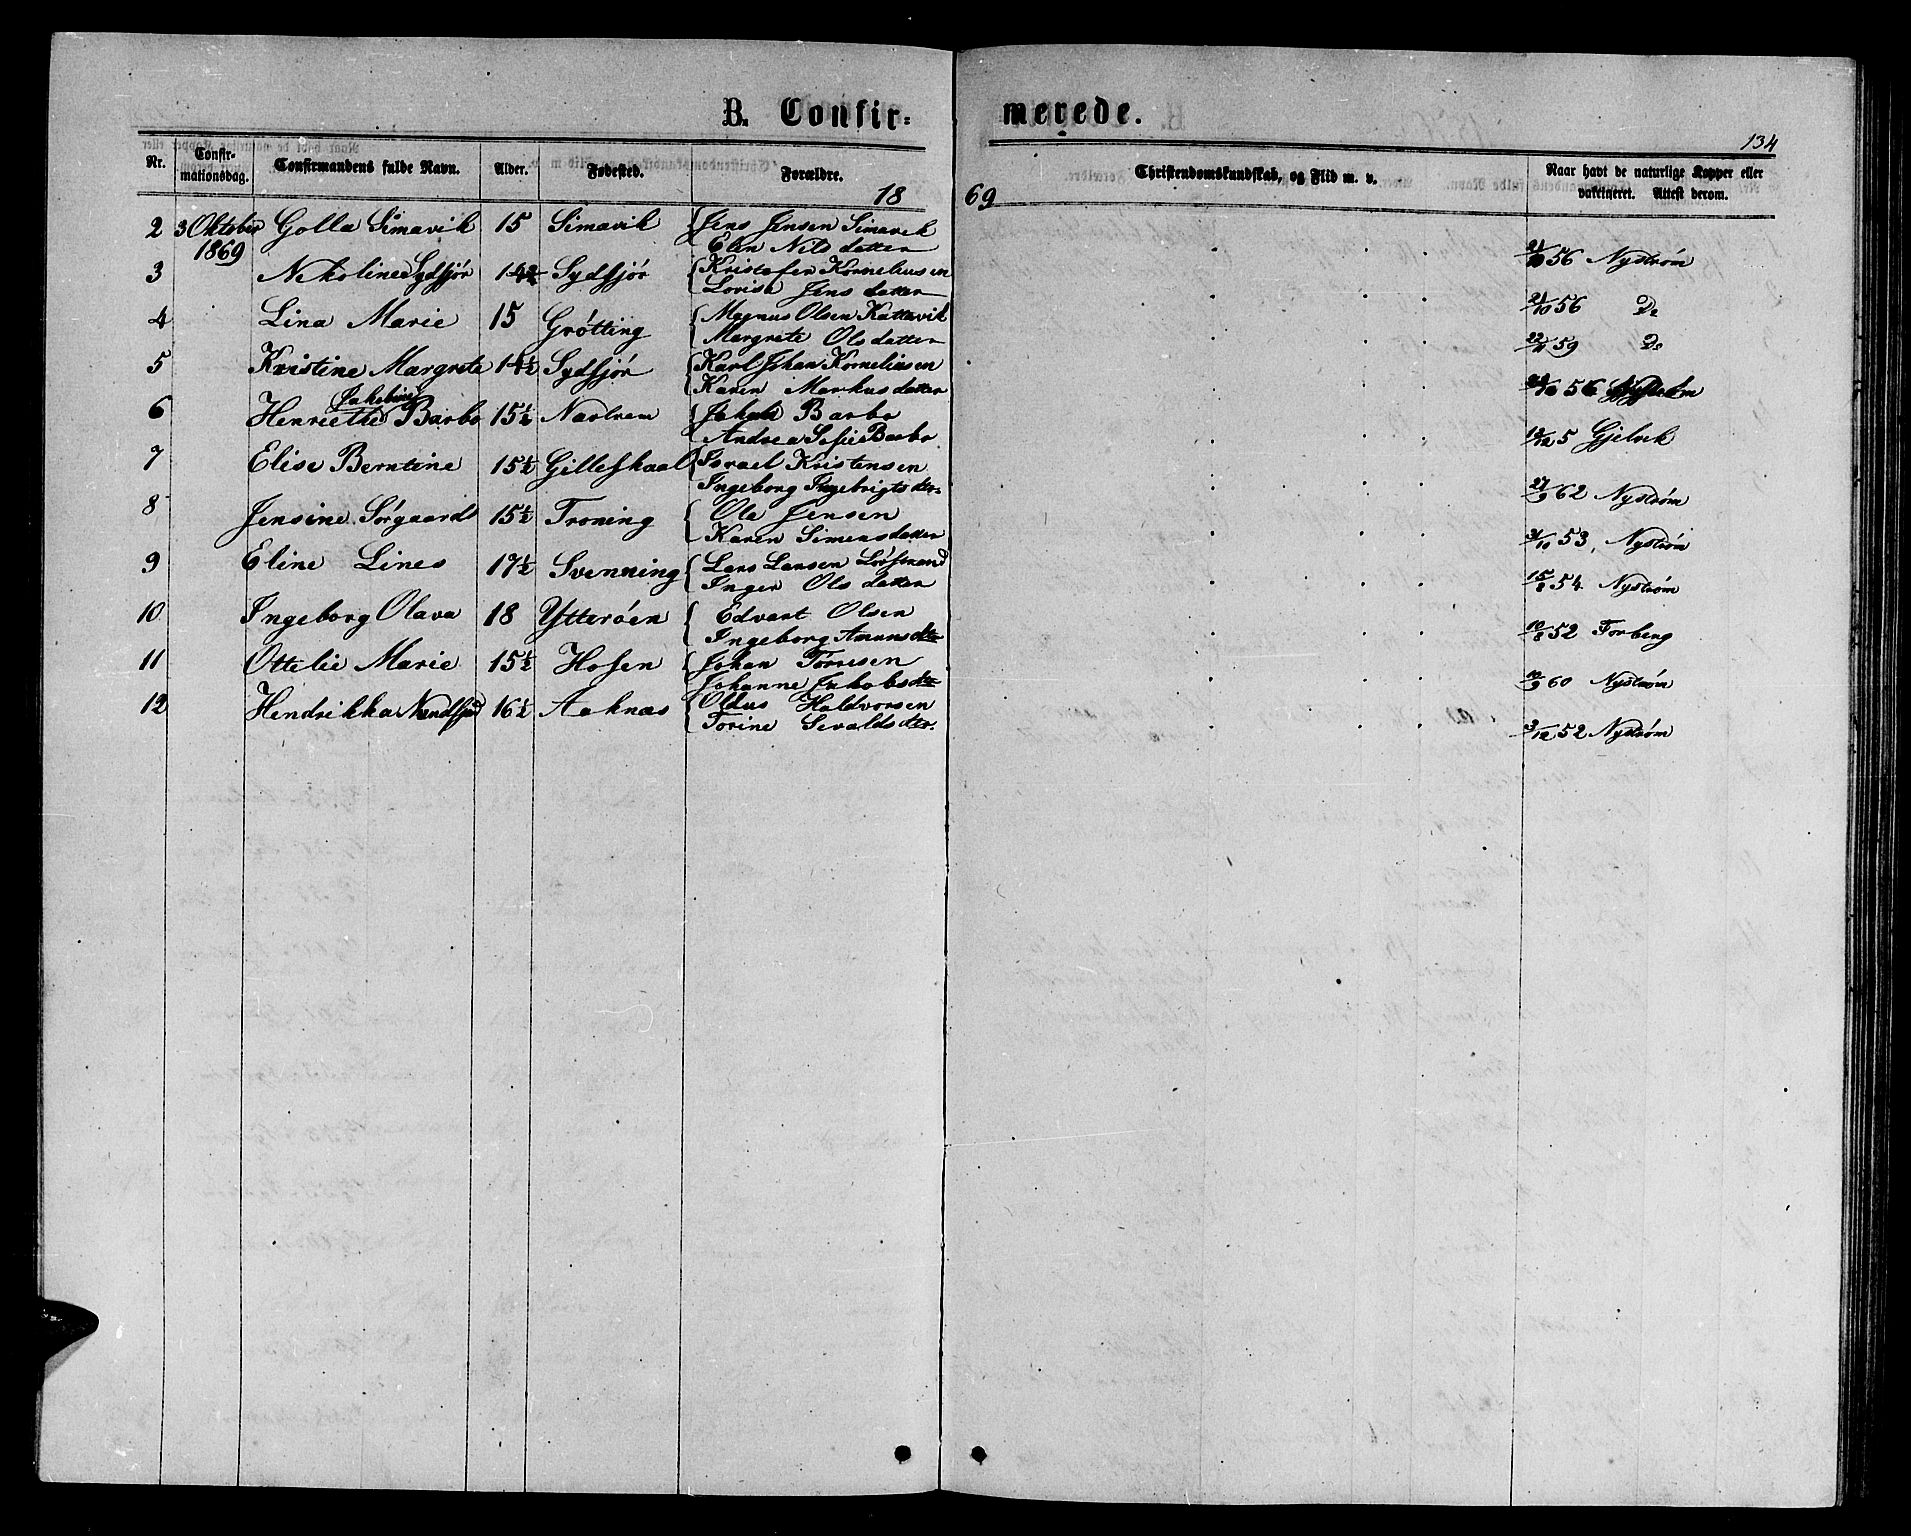 B. Confirmerede.
134
Nr. Confirmationsdag. Confirmandens fulde Navn. Alder. Fødested. Forældre. Christendomskundskab, og Flid m. v. Naar havt de naturlige Kopper eller vakcineret. Attest derom.
1869
2 3 Oktober Golla Simavik 15 Simavik Jens Jensen Simavik
1869 Elen Nils datter 56 Nystrøm
3 Sydfjør Sydfjør Kristofer Korneliussen
Lovisa Jens datter 56 Do
4 Lina Marie 15 Grøtting Magnus Olsen Kattavik
Margrete Ols datter 59 Do
5 Kristine Margrete 14½ Sydfjør Karl Johan Korneliussen
Karen Markus datter 56
Jakobine
6 Henriethe Barbo 15½ Nartrem Jakob Barbo
Andrea Sofie Barbo 5 Gjelvik
7 Elise Berntine 15½ Gilleskaal Israel Kristensen
Ingeborg Ingebrigts dtr. 27/9 62 Nystrøm
8 Jensine Sørgaard 15½ Troning Ole Jensen
Karen Simensdatter 53, Nystrøm
9 Eline Lines 17½ Svenning Lars Larsen
Inger Ols datter 15/8 54 Nystrøm
10 Ingeborg Olava 18 Ytterøen Edvart Olsen
Ingeborg Amunsdtr 10/8 52 Forberg
11 Ottelie Marie 15½ Hofen Johan Torresen
Johanne Jakobsdtr 60 Nystrøm
12 Hendrikka 16½ Aaknæs Oldus Haldvorsen
Torine Sivaldsdtr. 3/12 52 Nystrøm